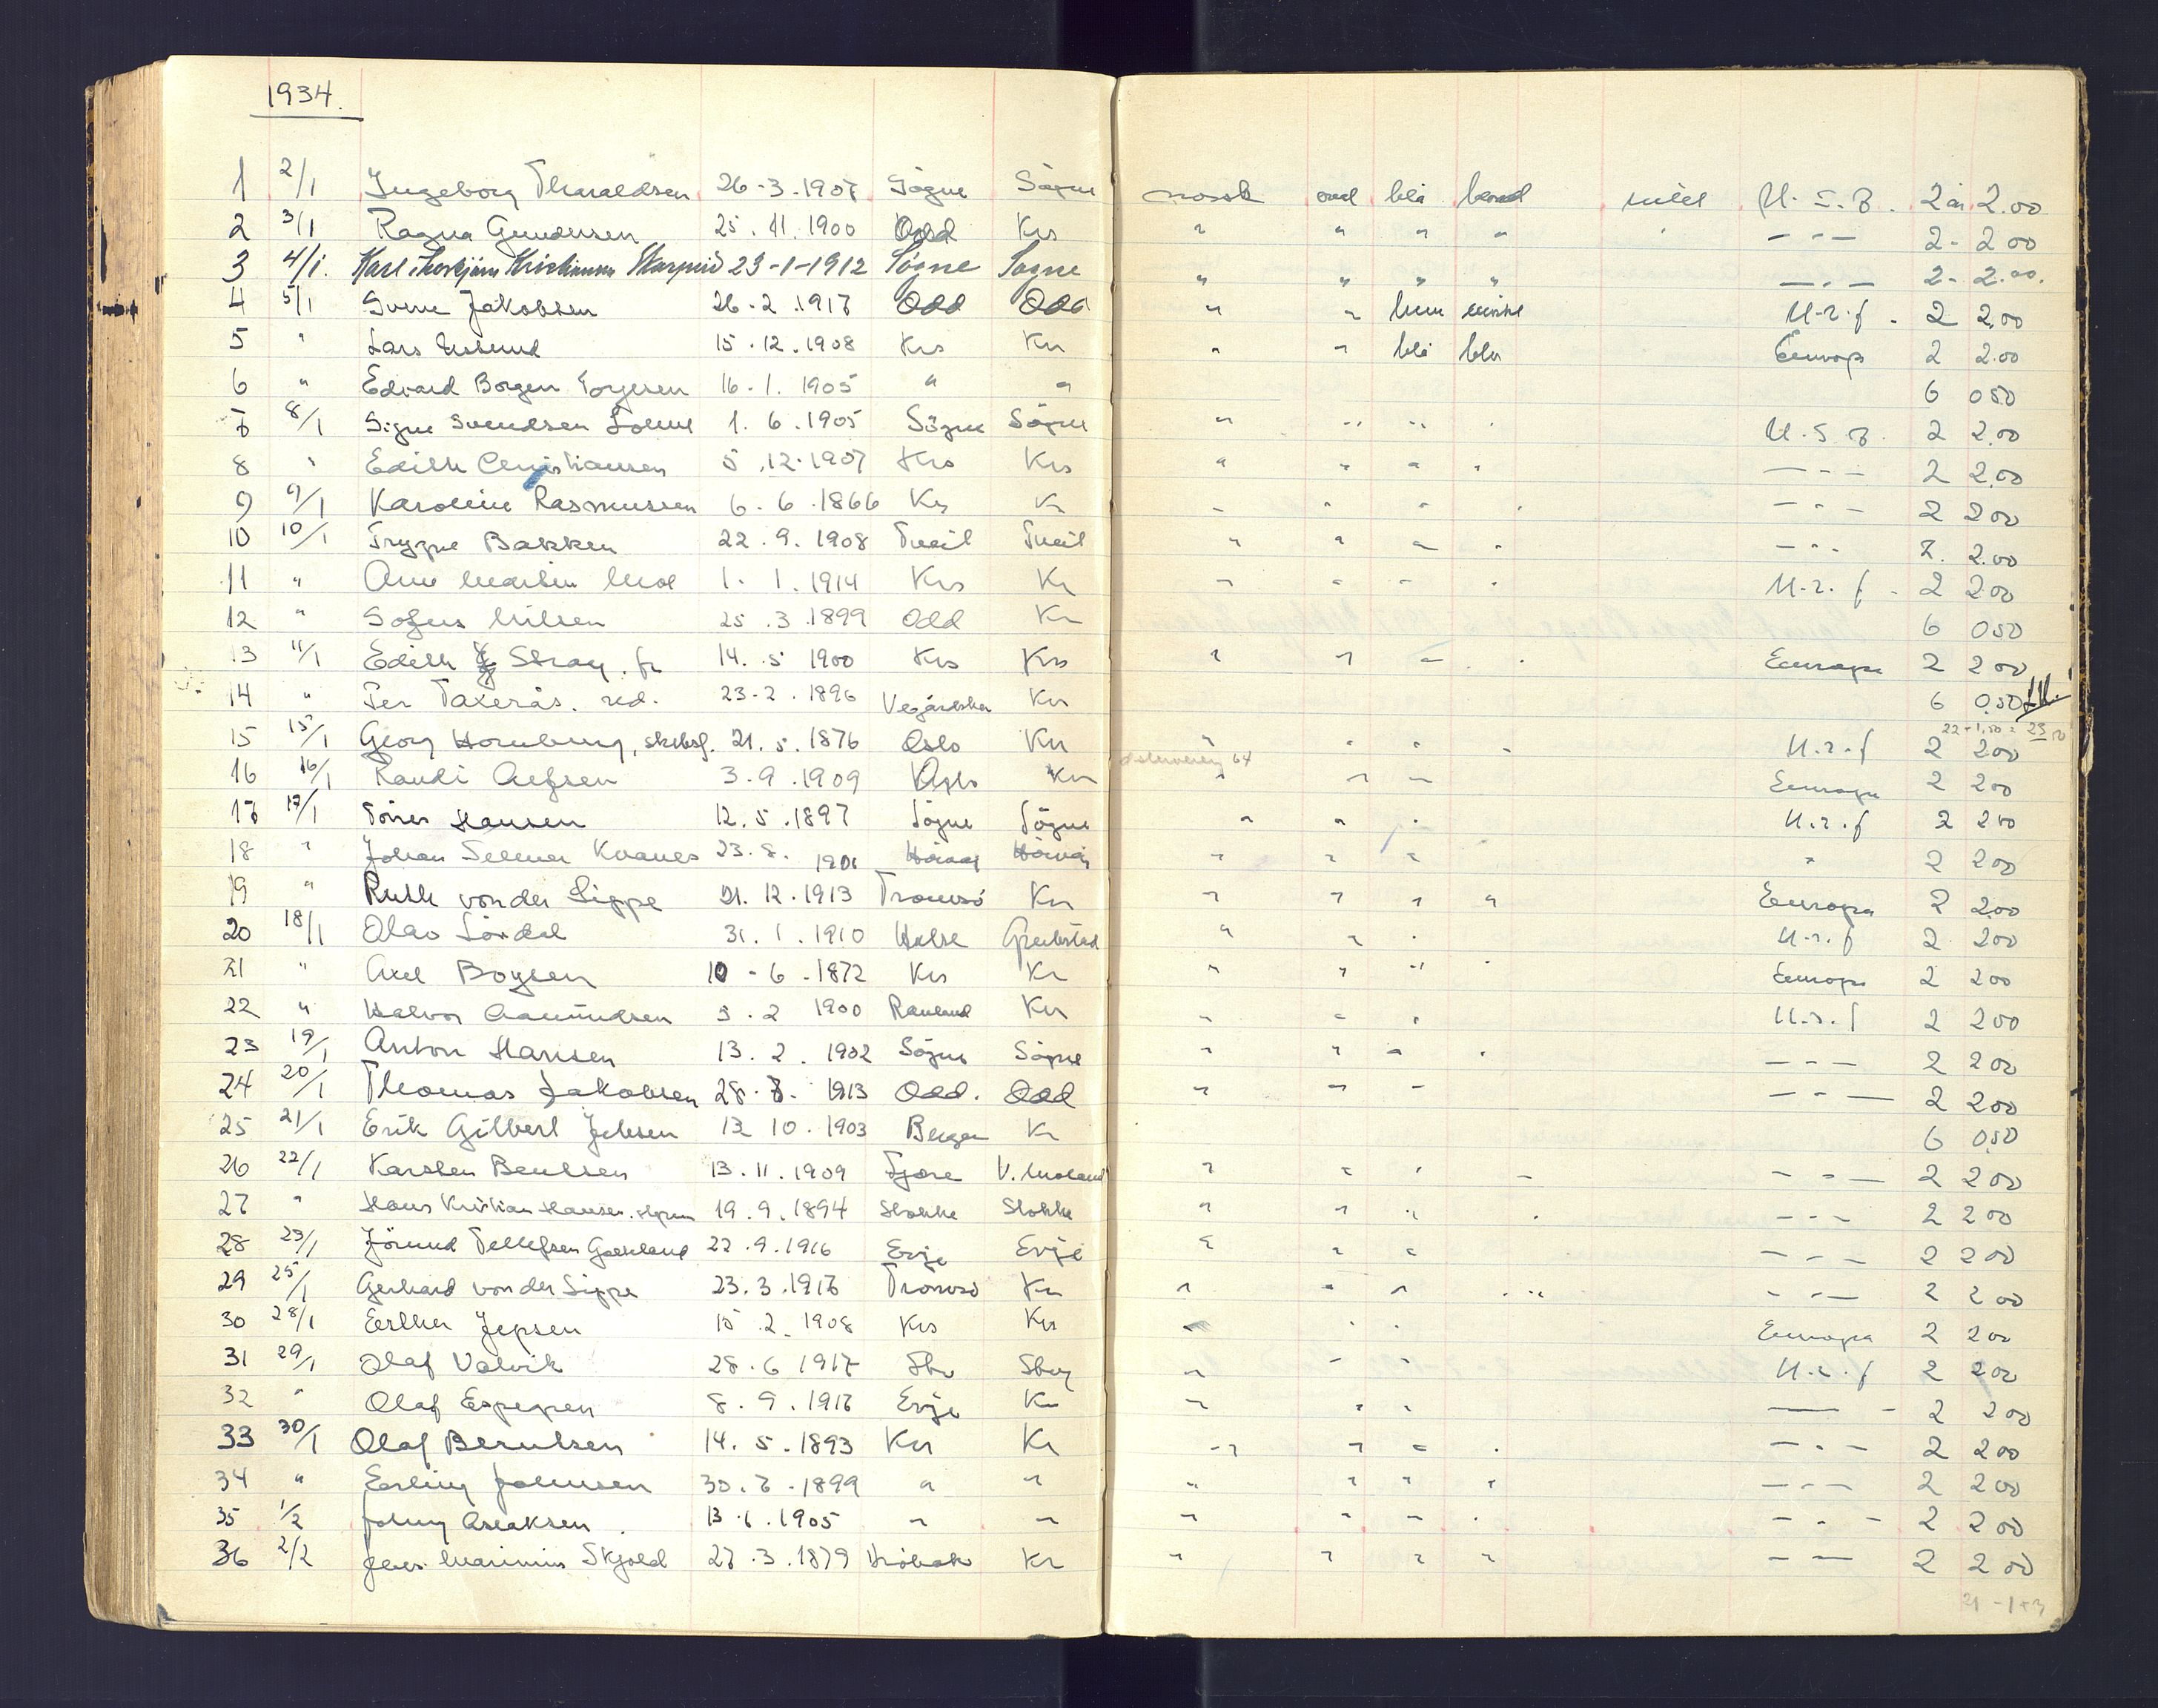 1934.
1 2/1 Ingeborg Tharaldsen 26-3-1907 Sögne Sögne norsk oval blå blond intet U.S.A. 2 år 2.00
2 3/1 Ragna Gundersen 25.11.1900 Odd Krs " " " " - - - 2 - 2 00
3 4/1. Karl Kristiansen 23-1-1912 Søgne Søgne " " " " - - - 2 - 2.00.
4 5/1 Sverre Jakobsen 26-2.1917 Odd Odd " " brun mörk U-r-f - 2 2.00
5 " Lars 15.12.1908 Krs Kr " " blå blon Europ 2 2.00
6 " Edvard Borgen Torjesen 16-1.1905 " " 6 0 50
7 8/1 Signe Svendsen 1.6.1905 Sögne Sögne " " " " U.S.A. 2 2.00
8 " Edith Christiansen 5.12-1907 Krs Krs " " " " - - - 2 2.00
9 9/1 Karoline Rasmussen 6-6.1866 Kr Kr " " " " - - - 2 2 00
10 10/1 Trygve Bakken 22.9.1908 Tveit Tveit " " " " - - - 2. 2.00
11 " Arne Martin 1.1.1914 Krs Kr " " " " U.r.f - 2 2 00
12 " Sofus Nilsen 25.3.1899 Odd Kr 6 0 50
13 11/1 Edith Stray. fr 14.5 1900 Krs Krs " " " " Europa 2 2 00
14 " Per Taxerås. red. 23-2.1896 Vegårdshei Kr 6 0.50
22+1.50 = 23 50
15 15/1 Georg Hornburg, 21.5.1876 Oslo Kr " " " " U.r.f 2 2 00
16 16/1 Randi 3.9.1909 Oslo Kr " " " Europa 2 2 00
17 17/1 Hansen 12.5.1897 Sögne Sögne " " " U.r.f 2 2 00
18 " Johan Selmer Kvanes 23.8. 1901 " " " " 2 2 00
19 " Ruth von der Lippe 21.12.1913 Tromsö Kr " " " " Europa 2 2.00
20 18/1 Olav 31.1.1910 Halse " " " U.r.f 2 2 00
21 " Axel Boysen 10-6-1872 Krs Kr " " " " Europa 2 2 00
22 " Halvor Aamundsen 3.2 1900 Rauland Kr " " " U.r.f 2 2 00
23 19/1 Anton Hansen 13.2.1902 Sögne Sögne " " " " - - - 2 2 00
24 20/1 Thomas Jakobsen 28. 1913 Odd. Odd " " " - - - 2 2 00
25 21/1 Erik Gilbert Jebsen 12 10.1903 Bergen Kr 6 0 50
26 22/1 Karsten Bentsen 13.11.1909 Fjære V. Moland " " " " - - - 2 2 00
27 " Hans Kristian Hansen. 19.9.1894 Stokke Stokke " " " " - - - 2 2 00
28 23/1 Jörund Tellefsen 22.9.1916 Evje Evje " " " - - - 2 2 00
29 25/1 Gerhard von der Lippe 23.3.1916 Tromsö Kr " " " " - - - 2 2 00
30 28/1 Esther Jepsen 15.2.1908 Krs Krs " " " Europa 2 2 00
31 29/1 Olaf Valvik 28.6 1917 " " " U.r.f 2 2 00
32 " Olaf 8.9.1916 Evje Kr " " " - - 2 2 00
33 30/1 Olaf Berntsen 14.5.1893 Kr Kr " " " " - - - 2 2 00
34 " Erling Johnsen 30.7-1899 " " " " " " - - - 2 2 00
35 1/2 Johny Aslaksen. 13.1.1905 " " " " " " - - - 2 2 00
36 2/2 Jens Marinius Skjold 27.3.1879 Kr " " " " - - 2 2 00